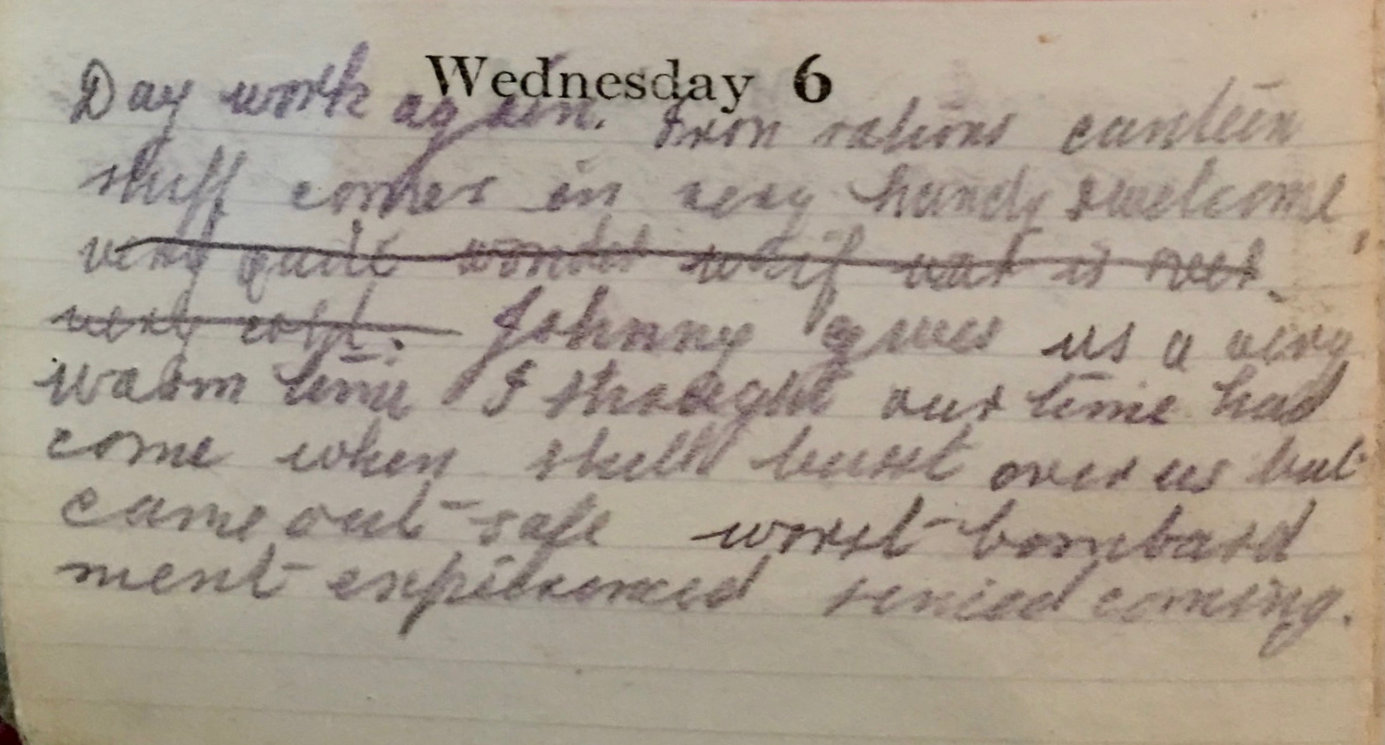 Wednesday 6
Day work again. Iron rations canteen
stuff comes in very handy & welcome,
very quite wonder if war is over.
very cold. Johnny gives us a very
warm time I thought our time had
come when shell burst over us but
came out safe worst bombard
ment expierenced coming.